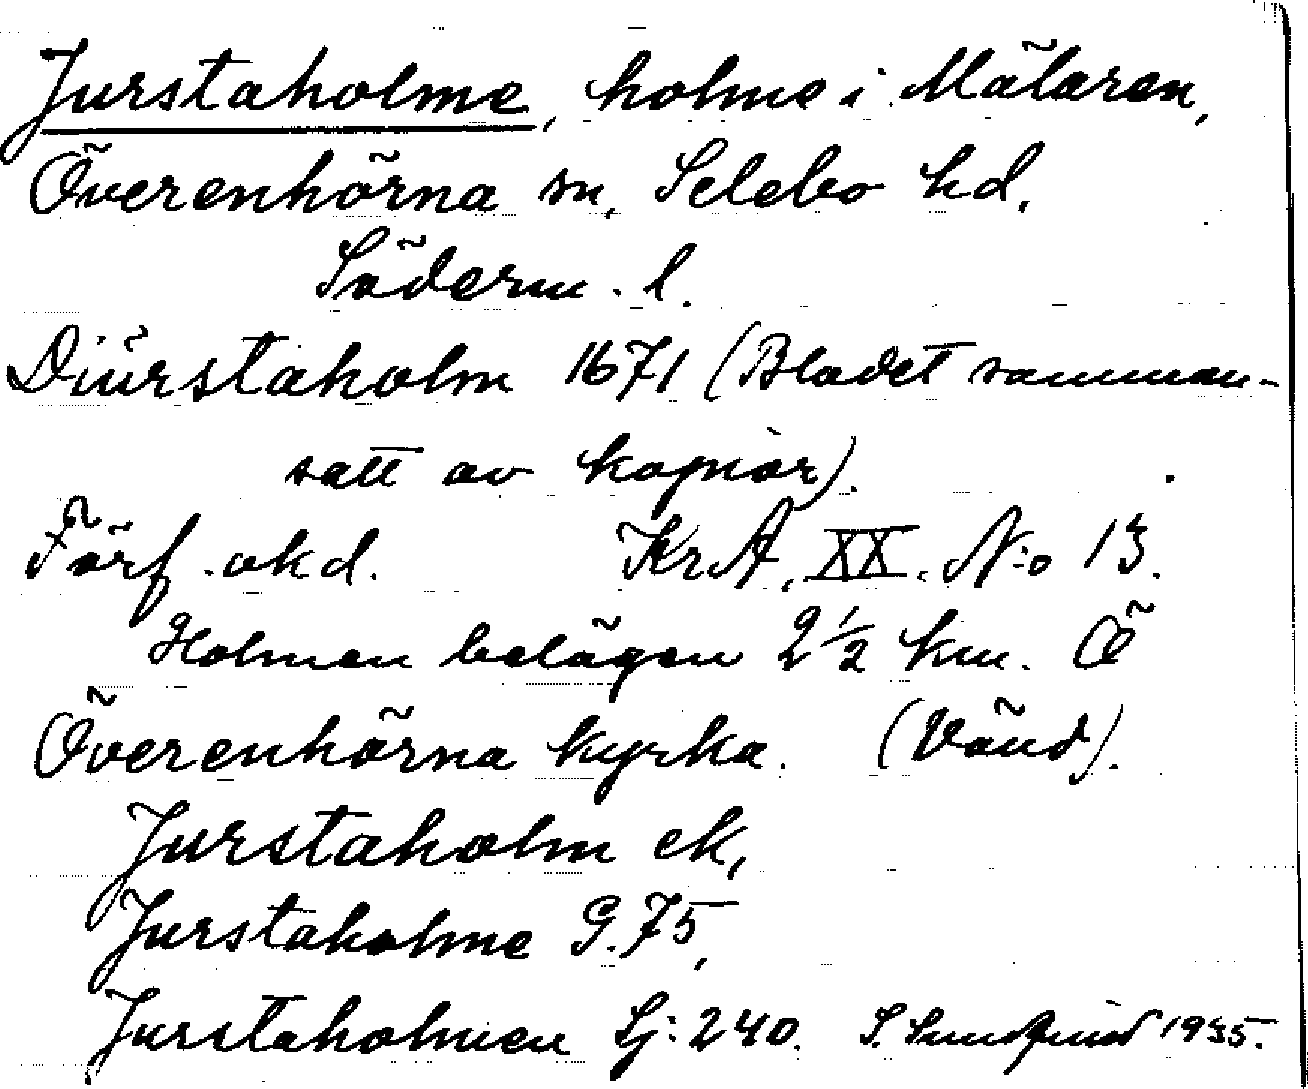 Jurstaholme, holme i Mälaren,
Överenhörna sn, Selebo hd.
Söderm. l.
Diürstaholm 1671 (Bladet samman-
satt av kopior).
Förf. okd. KrA, XX. N:o 13.
Holmen belägen 2½ km. Ö
Överenhörna kyrka. (Vänd).
Jurstaholm ek,
Jurstaholme G.75,
Jurstaholmen Sj: 240. S. Sundquist 1935.